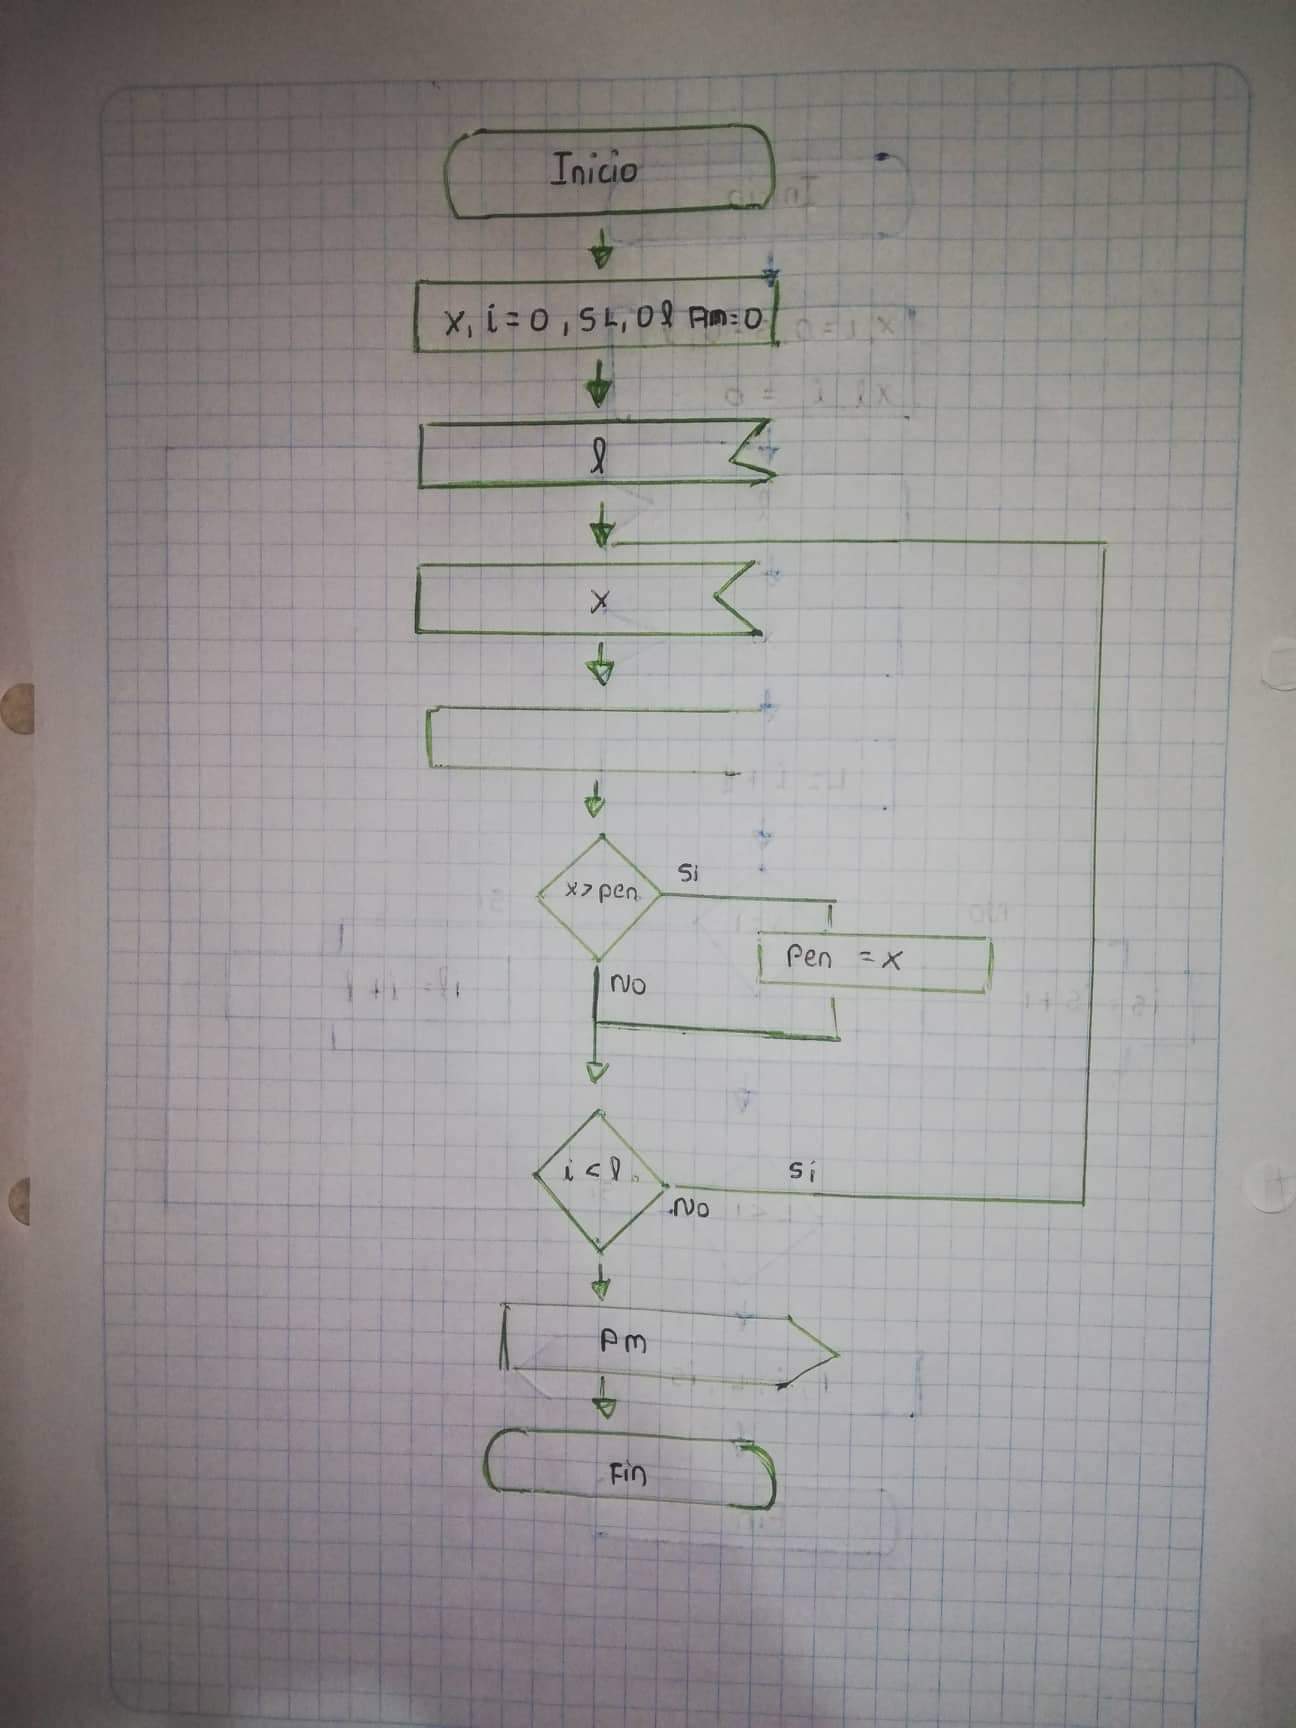 Inicio
x, i = 0, SL, 0 l Pm = 0
l
x
x > pen
Si
Pen = x
No
i < l
Si
No
Pm
Fin